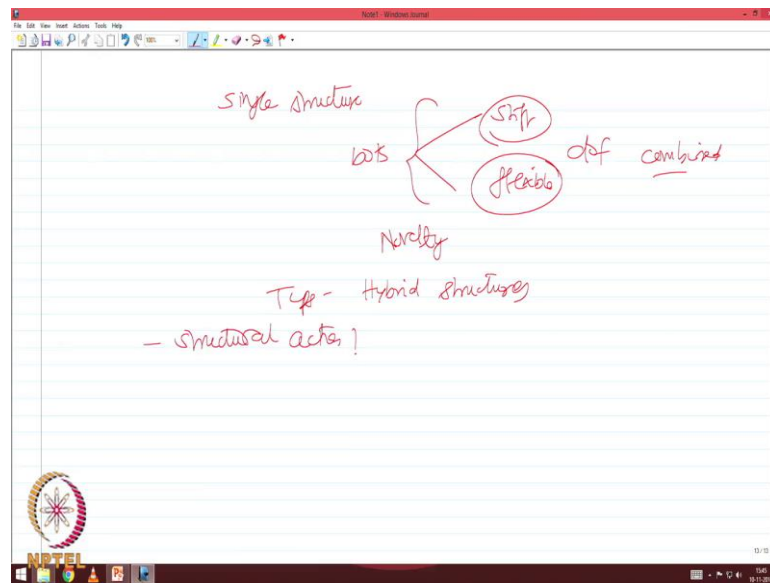 Note1 - Windows Journal
File Edit View Insert Actions Tools Help
Single structure
stiff
both
dof combined
flexible
Novelty
Type - Hybrid structures
- structural action!
NPTEL
13/13
1545